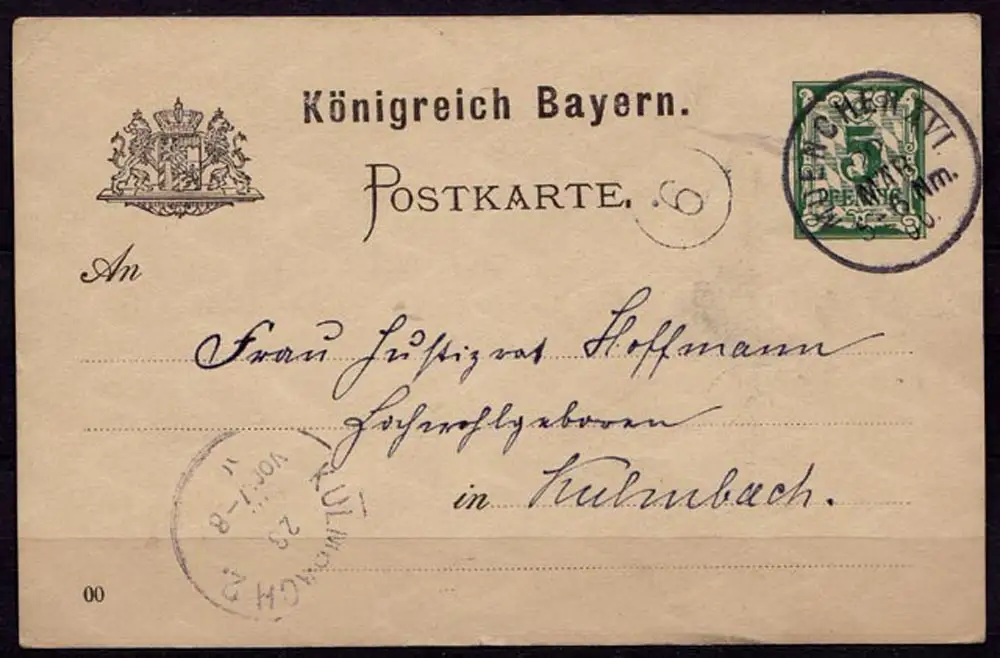 Königreich Bayern.
POSTKARTE.
6
5
PFENNIG
MUENCHEN XVI.
MAR.
5-6 NM.
00.
An
Frau Justizrat Hoffmann
Hochwohlgeboren
in Kulmbach.
KULMBACH
VOR. 7-8
23
00